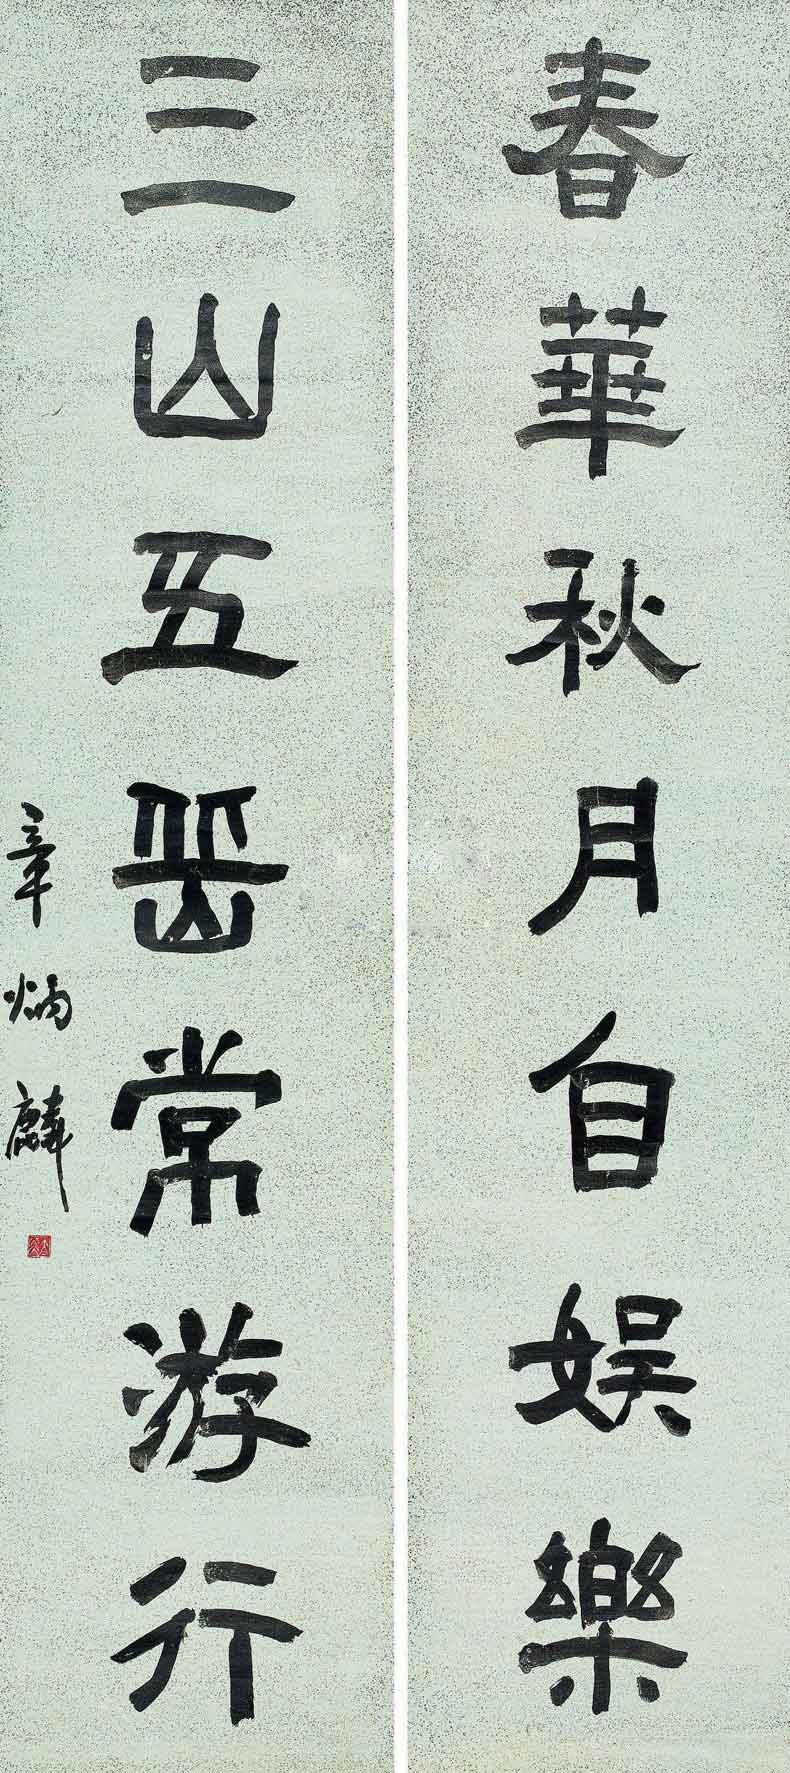 春華秋月自娛樂
三山五岳常游行
章炳麟